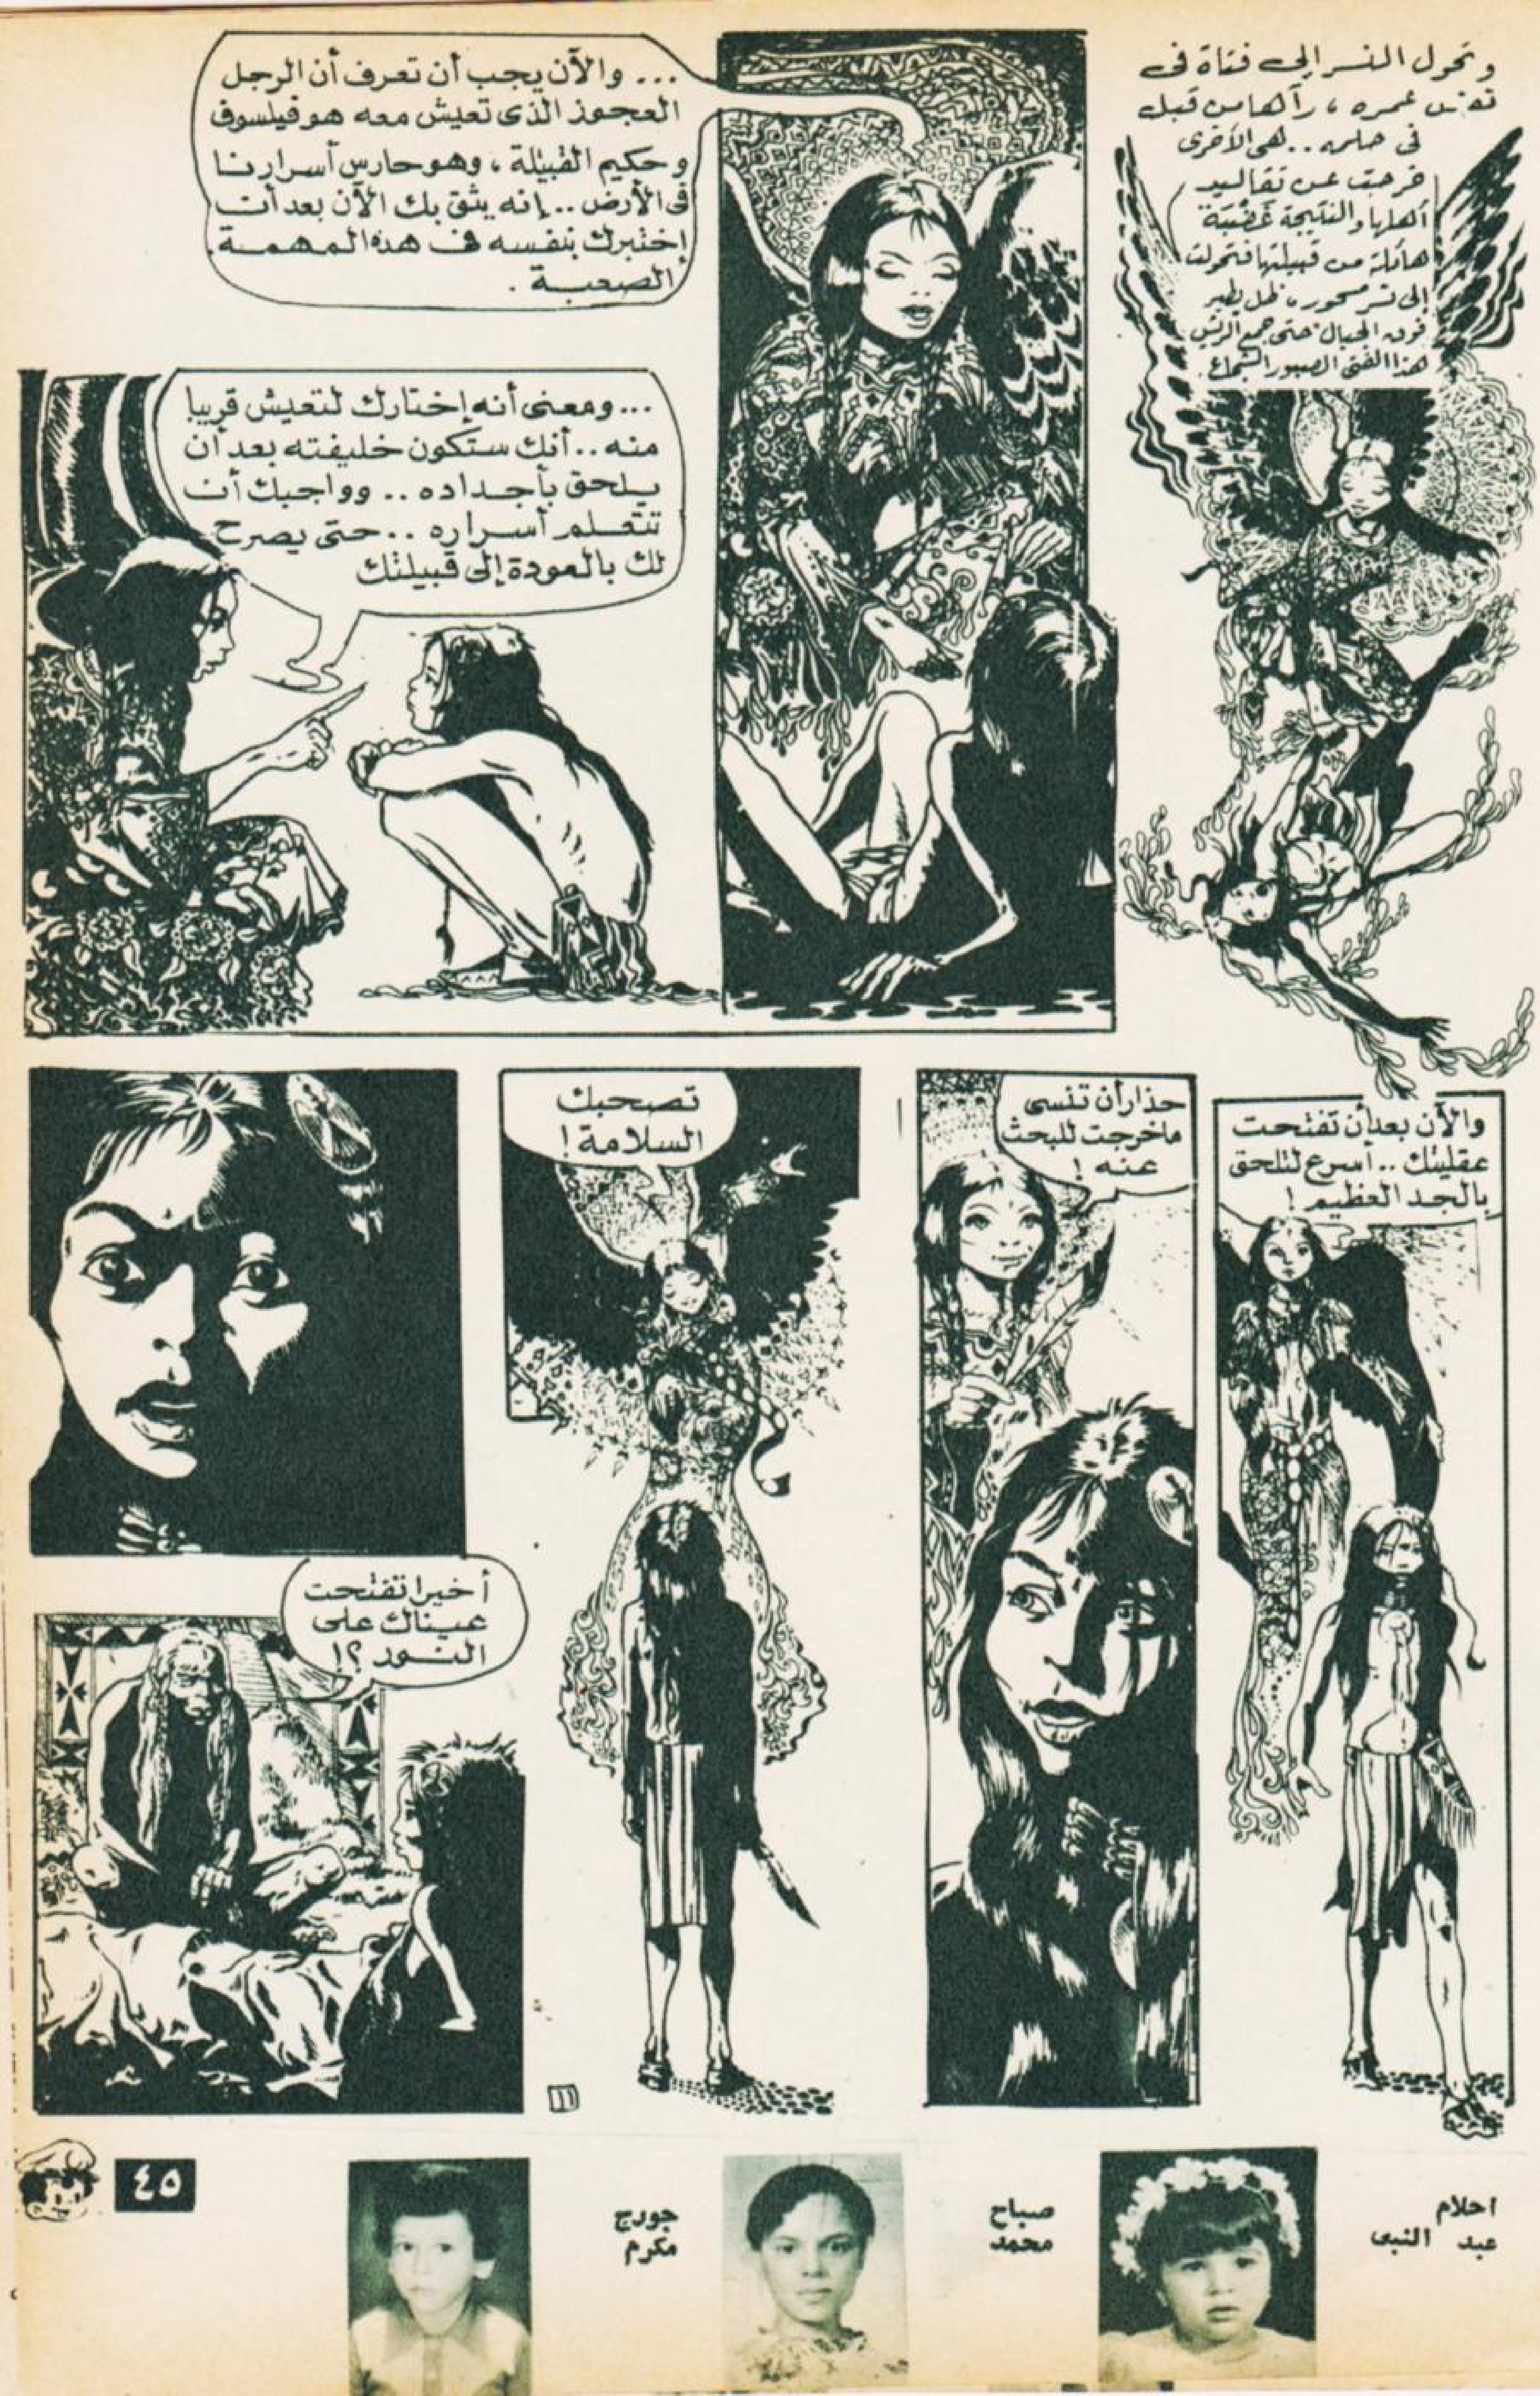 وتحول النسر إلى فتاة فى
نفس عمره ، رآها من قبل
فى حلمه .. هى الأخرى
خرجت عن تقاليد
أهلها والنتيجة غضبة
هائلة من قبيلتها فتحولت
إلى نسر مسحور ، ظل يطير
فوق الجبال حتى جمع الريش
هذا الفتى الصبور الشجاع .
... والآن يجب أن تعرف أن الرجل
العجوز الذى تعيش معه هو فيلسوف
و حكيم القبيلة ، وهو حارس أسرارنا
فى الأرض .. إنه يثق بك الآن بعد أن
إختبرك بنفسه فى هذه المهمة
الصعبة .
... ومعنى أنه إختارك لتعيش قريبا
منه .. أنك ستكون خليفته بعد أن
يلحق بأجداده .. وواجبك أن
تتعلم أسراره .. حتى يصرح
لك بالعودة إلى قبيلتك
والآن بعد أن تفتحت
عقليتك .. أسرع لتلحق
بالجد العظيم !
حذار أن تنسى
ماخرجت للبحث
عنه !
تصحبك
السلامة !
أخيرا تفتحت
عيناك على
النور ؟!
١١
احلام
عبد النبى
صباح
محمد
جورج
مكرم
٤٥